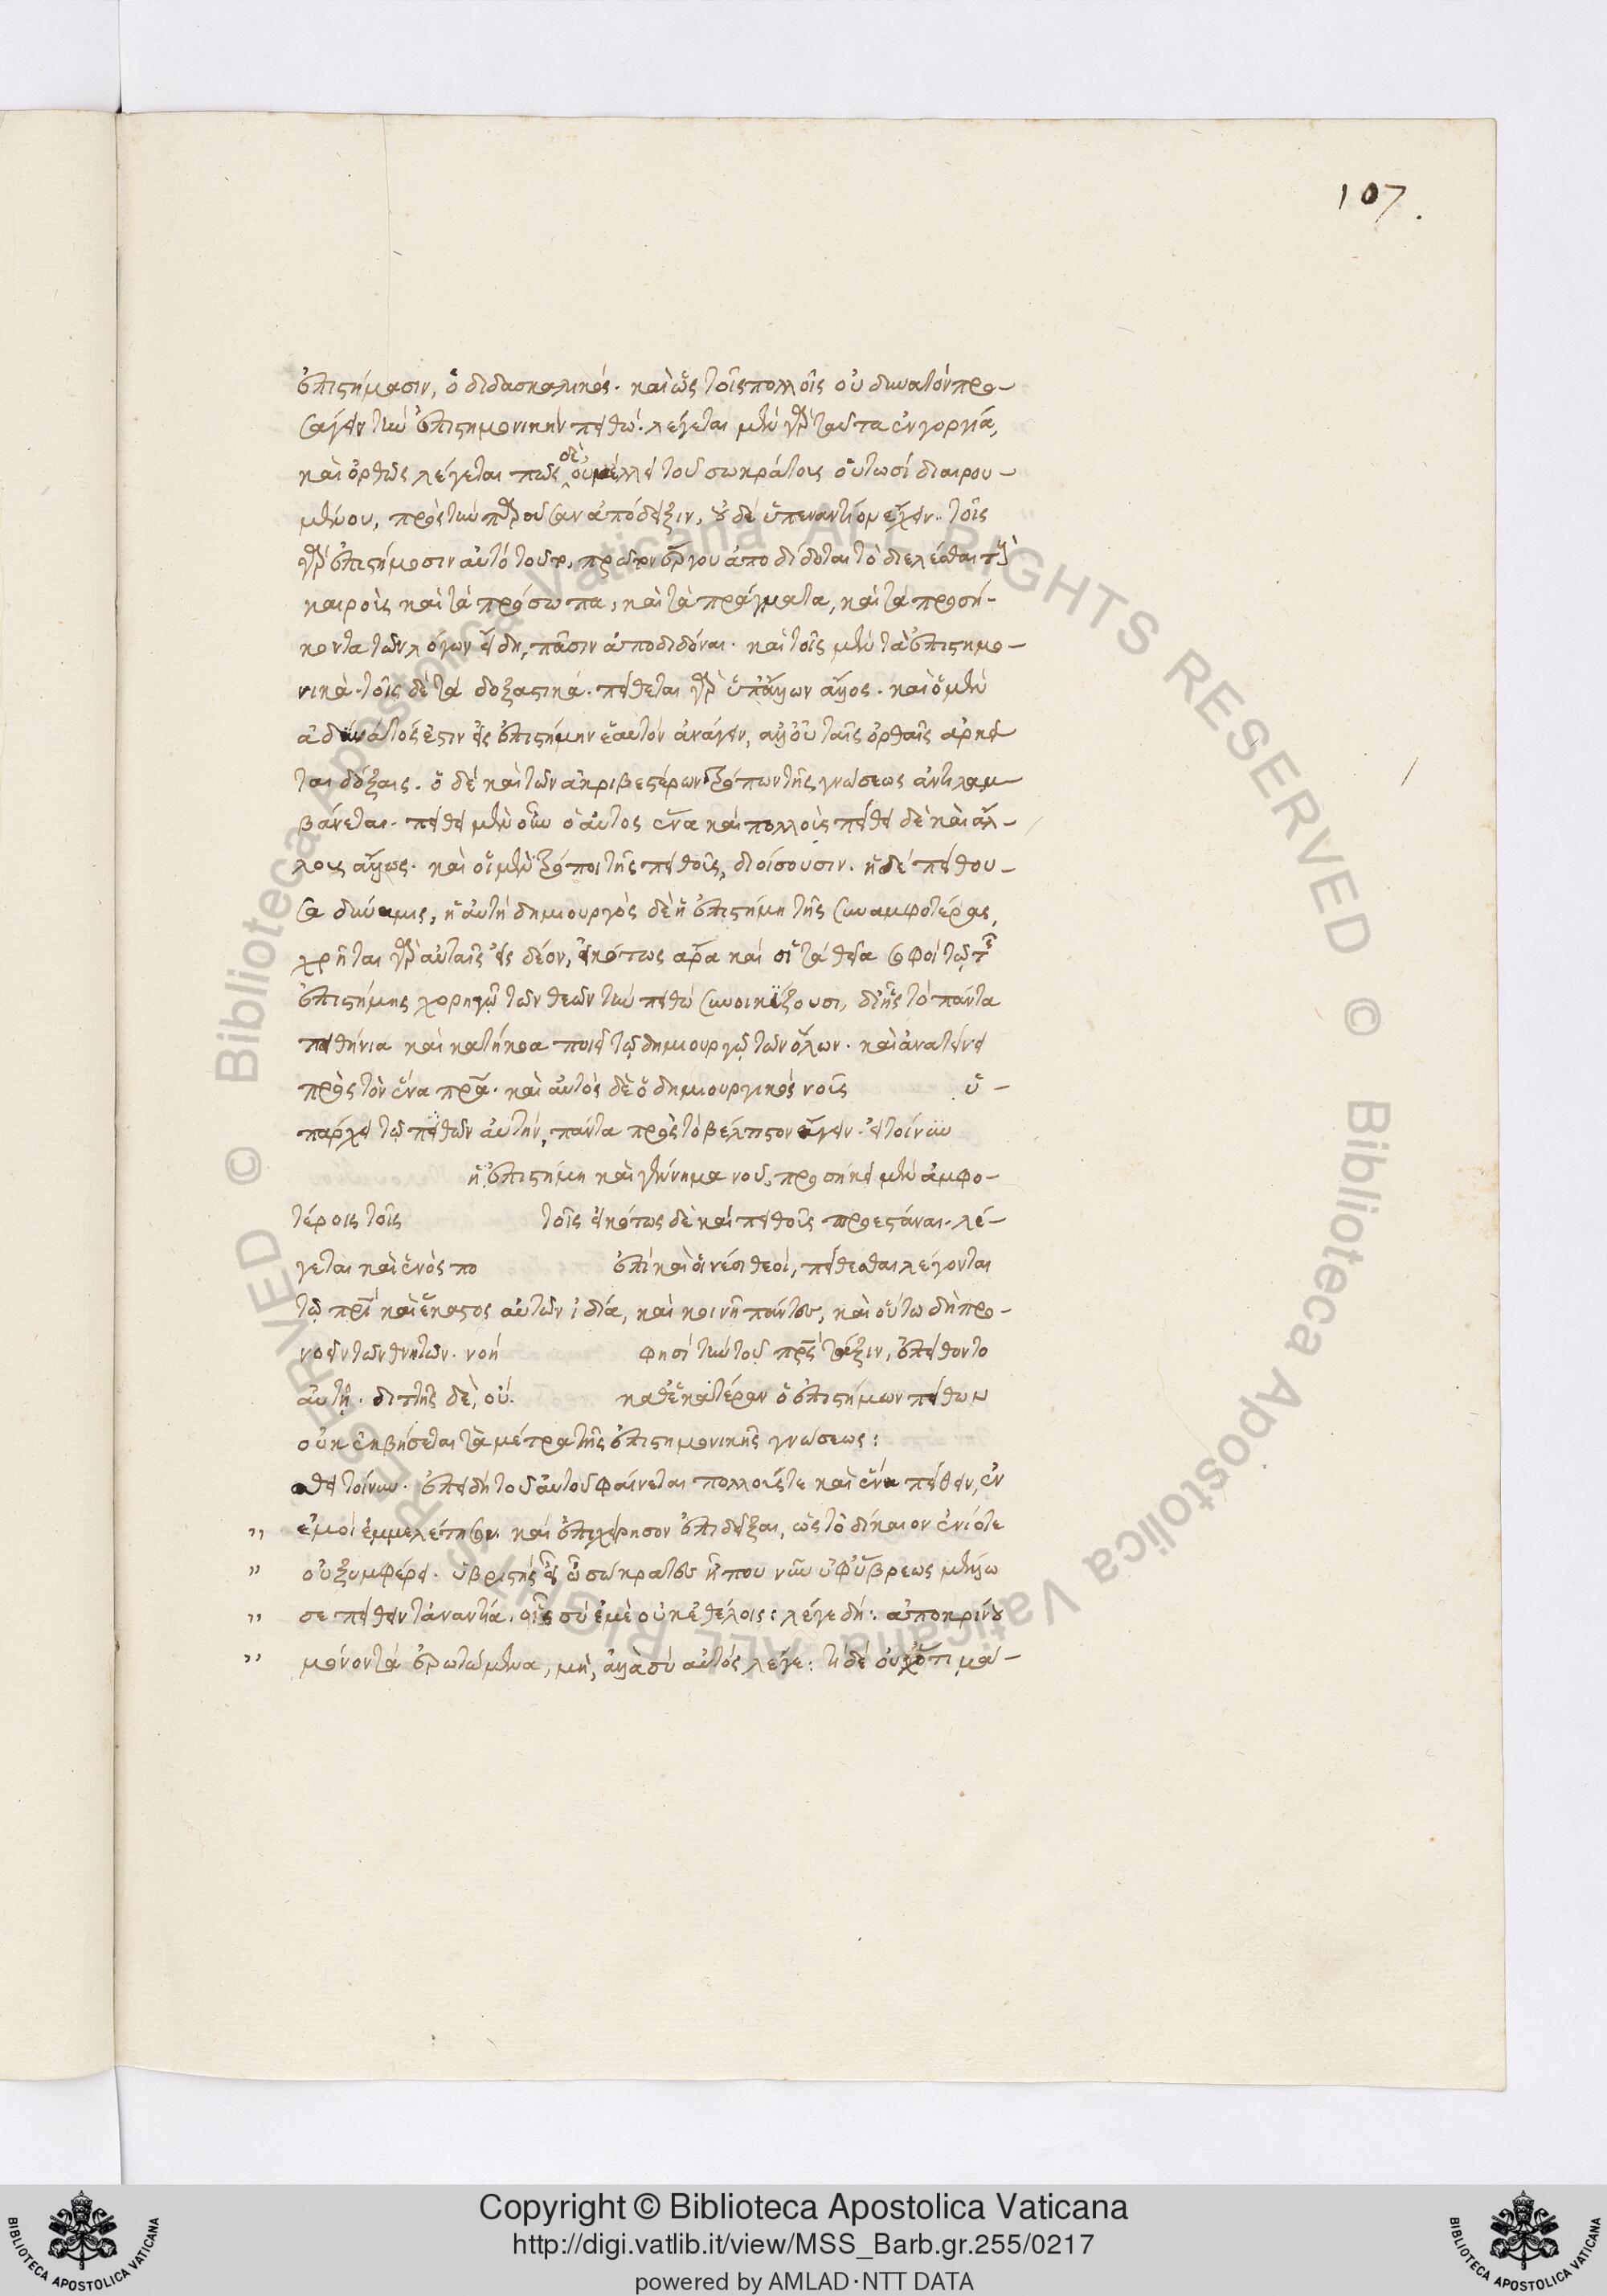 107.
ἐπιστήμοσιν, ὁ διδασκαλικός. καὶ ὡς τοῖς πολλοῖς οὐ δυνατὸν προ-
σάγειν τὴν ἐπιστημονικὴν πειθώ. λέγεται μὲν γὰρ ταῦτα ἐν γοργίᾳ,
καὶ ὀρθῶς λέγεται πῶς δὲ οὐ μέλλει τοῦ σωκράτους οὑτωσὶ διαιρου-
μένου, πρὸς τὴν παροῦσαν ἀπόδειξιν, οὐδὲ ὑπεναντίον εἶχεν. τοῖς
γὰρ ἐπιστήμοσιν αὐτὸ τοῦτο, ἔργον ἀποδίδοται τὸ διελέσθαι τοὺς
καιροὺς καὶ τὰ πρόσωπα, καὶ τὰ πράγματα, καὶ τὰ προσή-
κοντα τῶν λόγων εἴδη, πᾶσιν ἀποδιδόναι. καὶ τοῖς μὲν τὰ ἐπιστημο-
νικά. τοῖς δὲ τὰ δοξαστικά. πείθεται γὰρ ὑπ' ἄλλων ἄλλος. καὶ ὁ μὲν
ἀδύνατός ἐστιν εἰς ἐπιστήμην ἑαυτὸν ἀνάγειν, ἀλλ' οὖν ταῖς ὀρθαῖς ἀρκεῖ
ται δόξαις. ὁ δὲ καὶ τῶν ἀκριβεστέρων τρόπων τῆς γνώσεως ἀντιλαμ-
βάνεται. πείθει μὲν οὖν ὁ αὐτὸς ἕνα καὶ πολλοὺς πείθει δὲ καὶ ἄλ-
λους ἄλλως. καὶ οἱ μὲν τρόποι τῆς πειθοῦς, διοίσουσιν. ἡ δὲ πείθου-
σα δύναμις, ἡ αὐτὴ δημιουργὸς δὲ ἡ ἐπιστήμη τῆς συναμφοτέρας,
χρῆται γὰρ αὐταῖς εἰς δέον, εἰκότως ἄρα καὶ οἱ τὰ θεῖα σοφοὶ τῷ τῆς
ἐπιστήμης χορηγῷ τῶν θεῶν τὴν πειθὼ συνοικίζουσι, δι' ἧς τὸ πάντα
πειθήνια καὶ κατήκοα ποιεῖ τῷ δημιουργῷ τῶν ὅλων. καὶ ἀνατείνει
πρὸς τὸν ἕνα πρα. καὶ αὐτὸς δὲ ὁ δημιουργικὸς νοῦς ὑ-
πάρχει τῷ πείθων αὐτὴν, πάντα πρὸς τὸ βέλτιστον ἄγειν. εἰ τοίνυν
ἡ ἐπιστήμη καὶ γέννημα νοῦ, προσήκει μὲν ἀμφο-
τέροις τοῖς τοῖς εἰκότως δὲ καὶ πειθοῦς προεστάναι. λέ-
γεται καὶ ἑνὸς πο ἐπὶ καὶ οἱ νέοι θεοὶ, πείθεσθαι λέγονται
τῷ πρὶ καὶ ἕκαστος αὐτῶν ἰδίᾳ, καὶ κοινῇ πάντες, καὶ οὕτω δὴ προ-
νοεῖν τῶν θνητῶν. νοή φησι τὴν τοῦ πρς τάξιν, ἐπείθοντο
αὐτῇ. διττῆς δὲ, οὐ. καθ' ἑκατέραν ὁ ἐπιστήμων πείθων
οὐκ ἐκβήσεται τὰ μέτρα τῆς ἐπιστημονικῆς γνώσεως:
ἴθι τοίνυν. ἐπειδὴ τοῦ αὐτοῦ φαίνεται πολλούς τε καὶ ἕνα πείθειν, ἐν
,, ἐμοὶ ἐμμελέτησον καὶ ἐπιχείρησον ἐπιδεῖξαι, ὡς τὸ δίκαιον ἐνίοτε
,, οὐ ξυμφέρει. ὑβριστὴς εἶ ὦ σώκρατες ἤπου νῦν ὑφ' ὕβρεως μέλλω
,, σε πείθειν τἀναντία, οἷς σὺ ἐμὲ οὐκ ἐθέλοις: λέγε δή: ἀποκρίνου
,, μόνον τὰ ἐρωτώμενα, μὴ, ἀλλὰ σὺ αὐτὸς λέγε: τί δὲ οὐχ ὅτι μά-
Copyright © Biblioteca Apostolica Vaticana
http://digi.vatlib.it/view/MSS_Barb.gr.255/0217
powered by AMLAD·NTT DATA
BIBLIOTECA APOSTOLICA VATICANA
BIBLIOTECA APOSTOLICA VATICANA
© Biblioteca Apostolica Vaticana ALL RIGHTS RESERVED
© Biblioteca Apostolica Vaticana ALL RIGHTS RESERVED